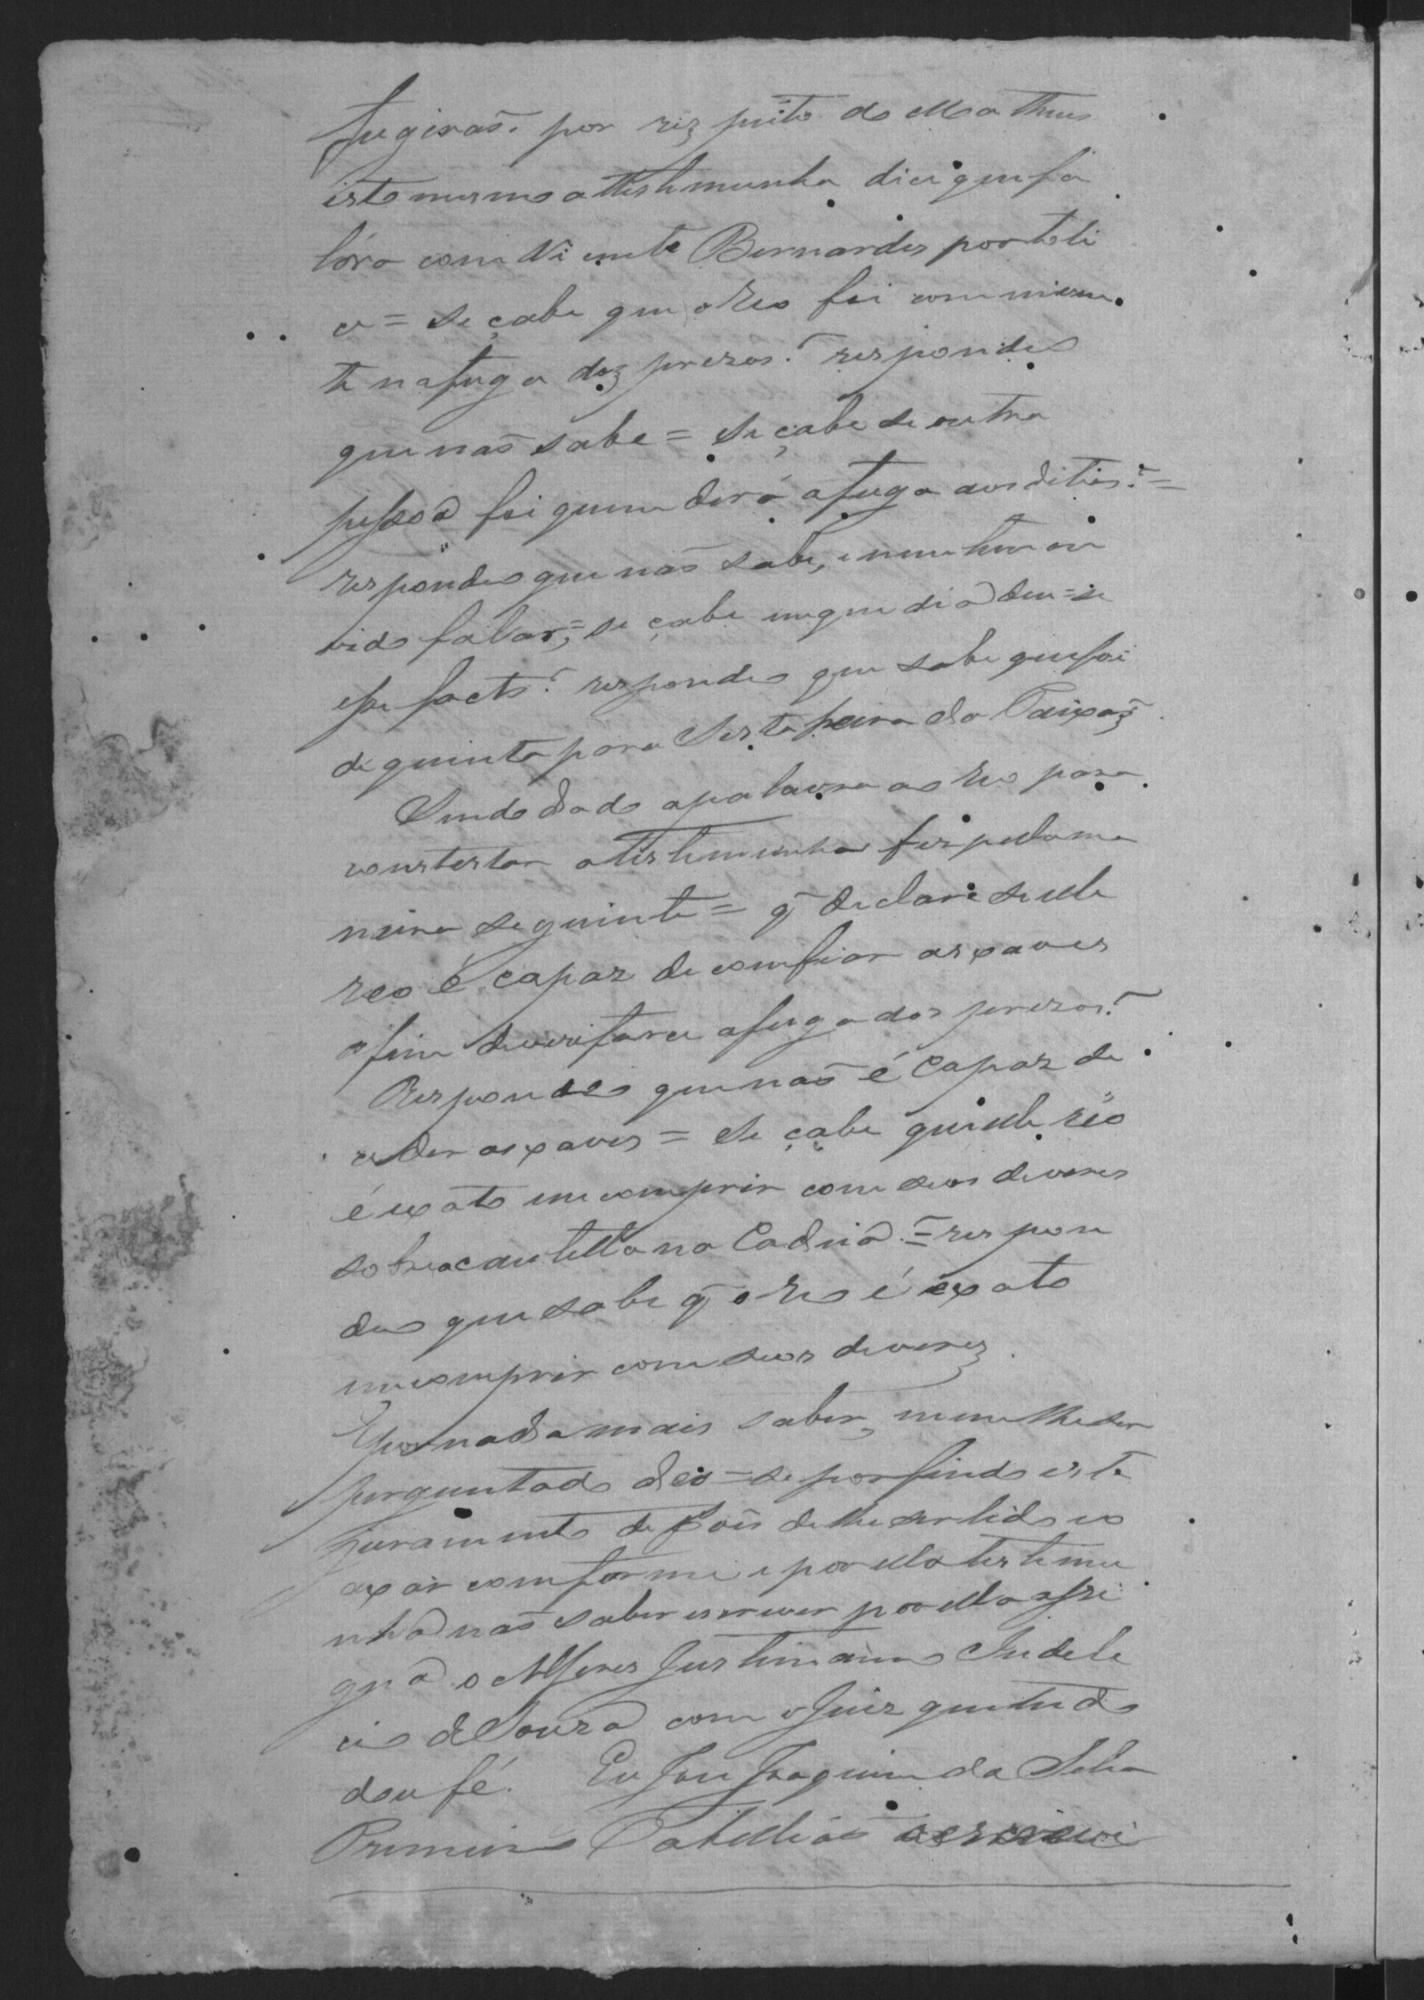 fugirão. por rispeito do Matheus
isto mesmo a testemunha dice que fa
lára com Vicente Bernardes por teli
ce = Se çabe que o Reo foi conniven
te na fuga dos prezos? respondeo
que naõ sabe = Se çabe se outra
pessoa foi quem dera a fuga aos ditos? =
respondeo que naõ sabe, e nem tem ou
vido falar; = se çabe em que dia deu=se
esse facto? respondeo que sabe que foi
de quinta para Sesta feira da Paixaõ
Sendo dado a palavra ao Reo para
constestar a testemunha fez pela ma
neira seguinte = q̃ declare se elle
reo é capaz de comfiar as xaves
a fim de verifarce a fuga dos prezos?
Respondeo que naõ é capaz de
ceder as xaves = Se çabe que elle reo
é exato em comprir com seos deveres
sobre a cautella na Cadeia? = respon
deo que sabe q̃ o Reo é exato
em comprir com seos deveres.
E por nada mais saber, nem lhe ser
perguntado deo=se por findo este
juramento depois de lhe ser lido e o
axar comforme e por ella testemu
nha naõ saber escrever por ella assi
gna o Alferes Justiniano Indele
cio de Souza com o Juiz que tudo
dou fé. Eu José Joaquim da Silva
Primeiro Tabelliaõ escrevi